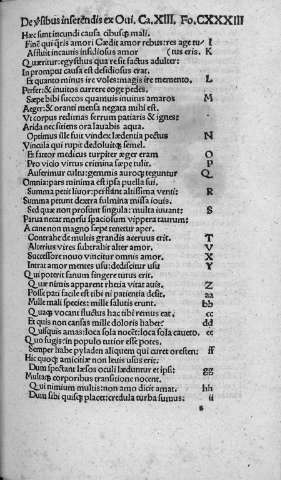 De ysibus inserendis ex Oui. Ca. XIII. Fo. CXXXIII
Hæc sunt iucundi causa cibusq; mali.
Finē qui q̄ris amori Cædit amor rebus: res age tu I
Affluit incautis insidiosus amor (tus eris. K
Quæritur: egysthus qua re sit factus adulter:
In promptu causa est desidiosus erat.
Et quanto minus ire voles: magis ire memento. L
Perfer: & inuitos currere coge pedes.
Sæpe bibi succos quamuis inuitus amaros M
Aeger: & oranti mensa negata mihi est.
Vt corpus redimas ferrum patiaris & ignes:
Arida nec sitiens ora lauabis aqua.
Optimus ille fuit vindex lædentia pectus N
Vincula qui rupit dedoluitq; semel.
Et furor medicus turpiter æger eram O
Pro vicio virtus crimina sæpe tulit. P
Auferimur cultu: gemmis auroq; teguntur Q
Omnia: pars minima est ipsa puella sui.
Summa petit liuor: perflant altissima venti: R
Summa petunt dextra fulmina missa iouis.
Sed quæ non prosunt singula: multa iuuant: S
Parua necat morsu spaciosum vippera taurum:
A cane non magno sæpe tenetur aper.
Contrahe de multis grandis aceruus erit. T
Alterius vires subtrahit alter amor. V
Successore nouo vincitur omnis amor. X
Intrat amor mentes usu: dediscitur usu Y
Qui poterit sanum fingere sanus erit.
Que nimis apparent rhetia vitat auis, Z
Posse pati facile est tibi ni patientia desit. aa
Mille mali species: mille salutis erunt. bb
Quaq; vocant fluctus hac tibi remus eat. cc
Et quis non causas mille doloris habet? dd
Quisquis amas: loca sola nocēt: loca sola caueto. ee
Quo fugis: in populo tutior esse potes.
Semper habe pyladen aliquem qui curet orestem: ff
Hic quoq; amiciciæ non leuis usus erit:
Dum spectant læsos oculi læduntur et ipsi: gg
Multaq; corporibus transitione nocent.
Qui nimium multis: non amo dicit amat. hh
Dum sibi quisq; placet: credula turba sumus: ii
s